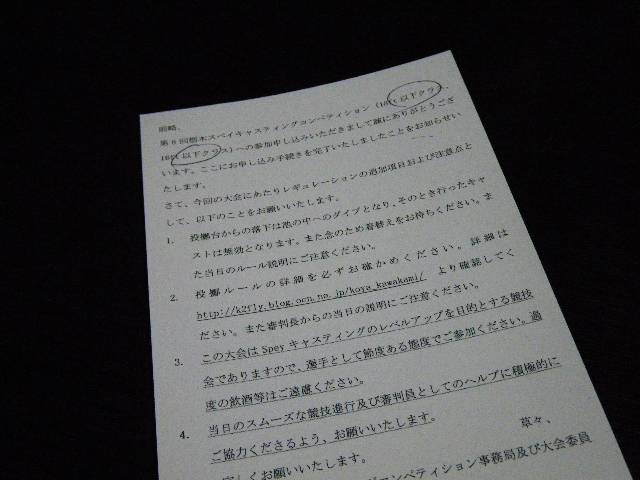 前略、
第6回栃木スペイキャスティングコンペティション(18ft 以下クラス、
16ft 以下クラス)への参加申し込みいただきまして誠にありがとうござ
います。ここにお申し込み手続きを完了いたしましたことをお知らせい
たします。
さて、今回の大会にあたりレギュレーションの追加項目および注意点と
して、以下のことをお願いいたします。
1. 投擲台からの落下は池の中へのダイブとなり、そのとき行ったキャ
ストは無効となります。また念のため着替えをお持ちください。ま
た当日のルール説明にご注意ください。
2. 投擲ルールの詳細を必ずお確かめください。詳細は
http://k2fly.blog.ocn.ne.jp/koya_kawakami/ より確認してく
ださい。また審判長からの当日の説明にご注意ください。
3. この大会は Spey キャスティングのレベルアップを目的とする競技
会でありますので、選手として節度ある態度でご参加ください。過
度の飲酒等はご遠慮ください。
4. 当日のスムーズな競技進行及び審判員としてのヘルプに積極的に
ご協力くださるよう、お願いいたします。
しくお願いいたします。 草々、
コンペティション事務局及び大会委員